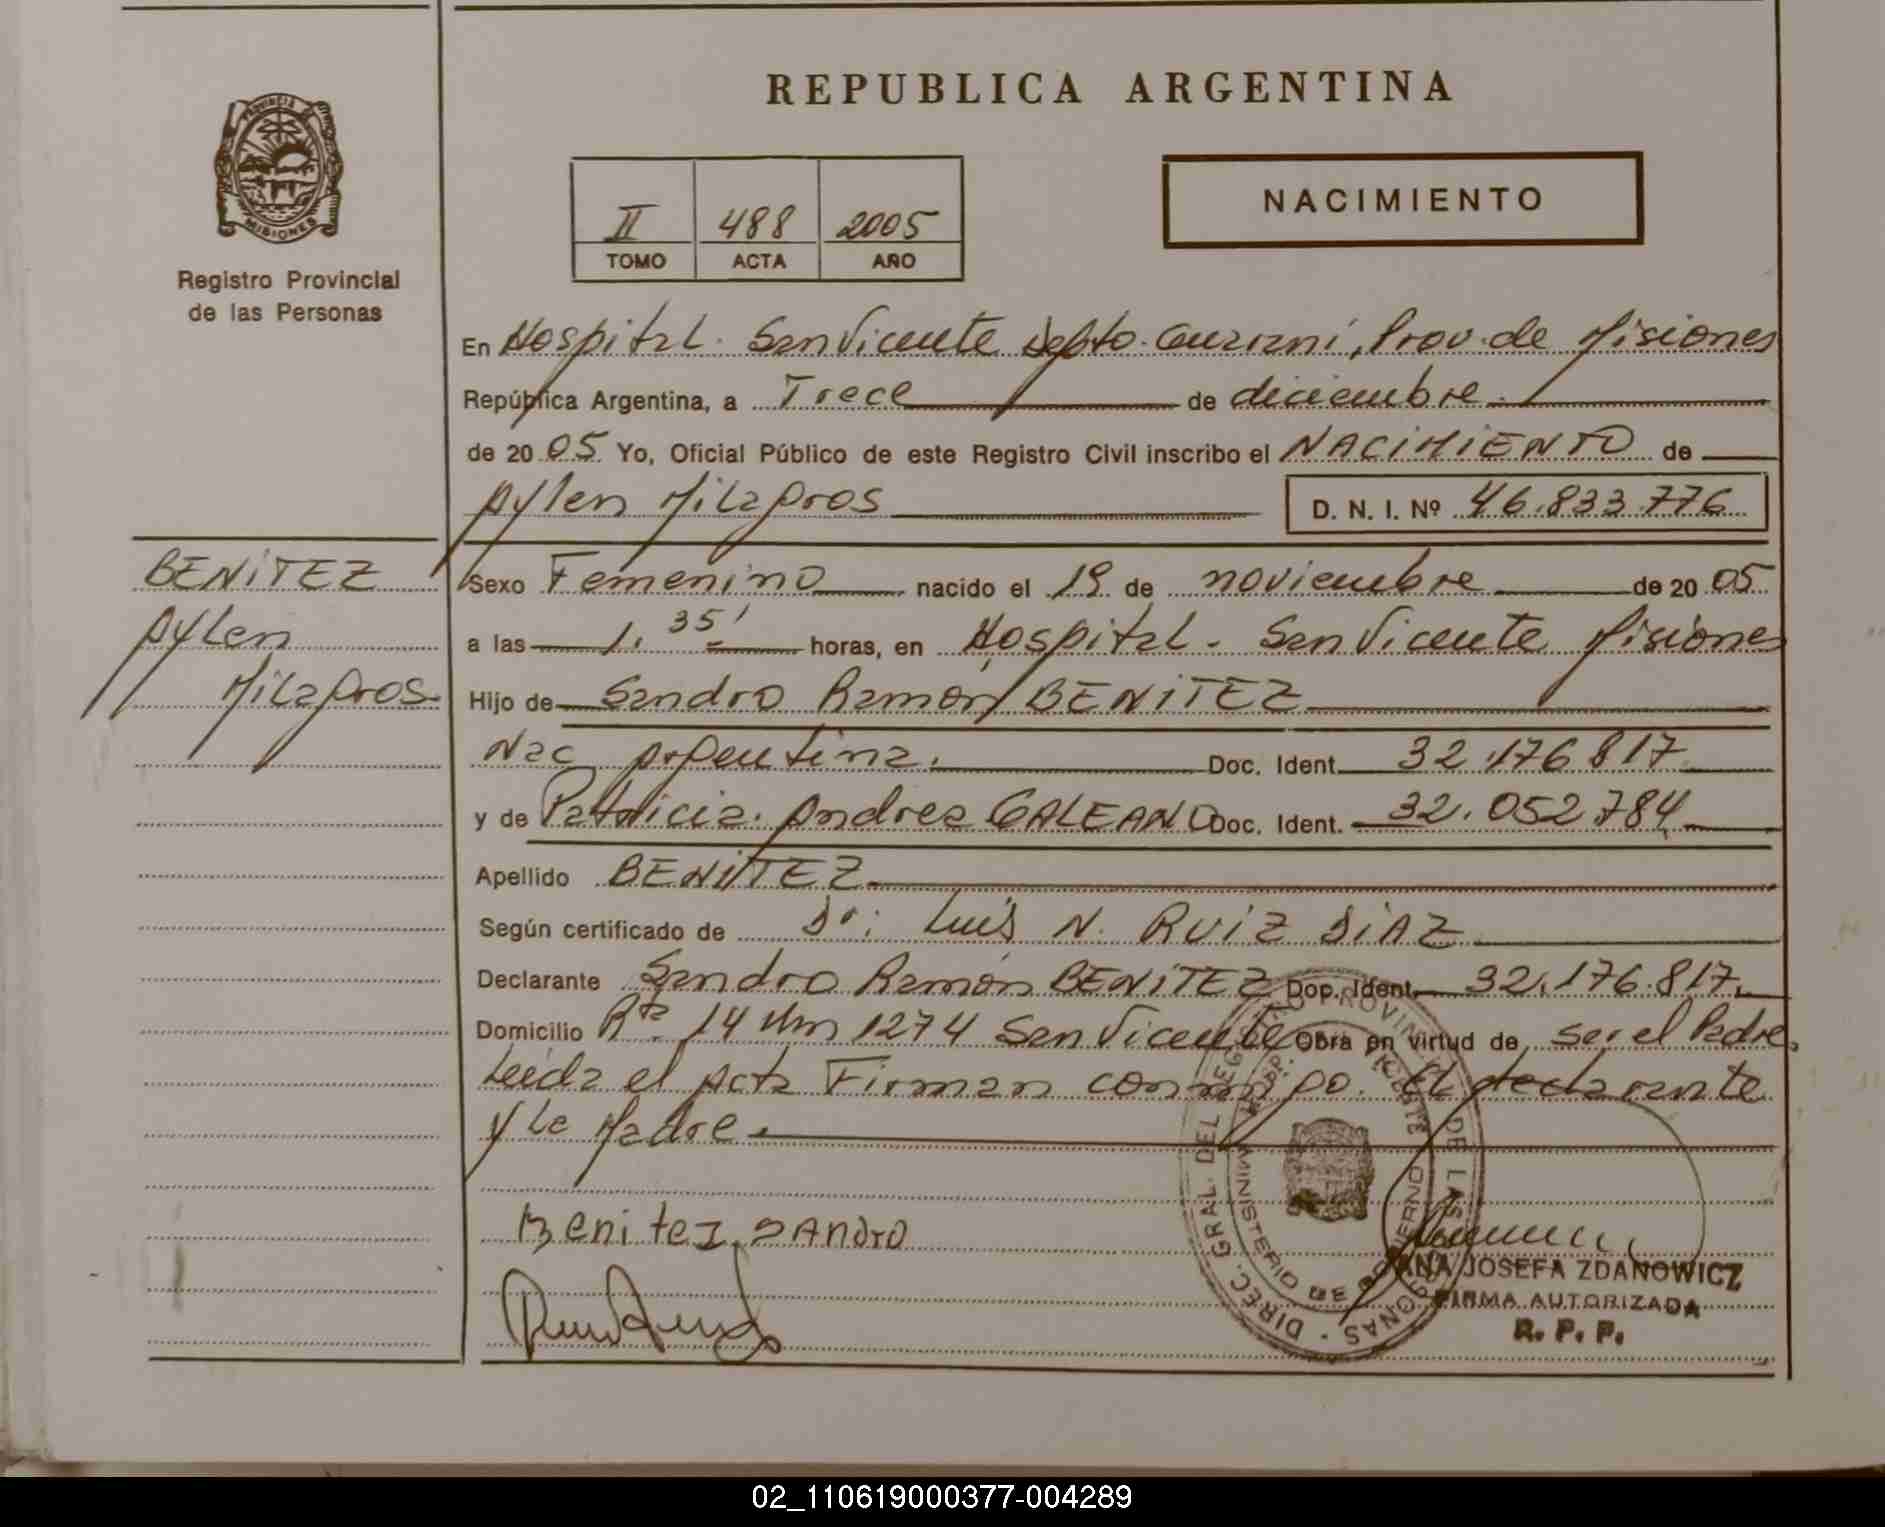 REPUBLICA ARGENTINA
PROVINCIA DE
MISIONES
Registro Provincial
de las Personas
II 488 2005
TOMO ACTA AÑO
NACIMIENTO
En Hospital. San Vicente Depto. Guaraní, Prov. de Misiones
República Argentina, a Trece de diciembre.
de 20 05 Yo, Oficial Público de este Registro Civil inscribo el NACIMIENTO de
Aylen Milagros D. N. I. Nº 46.833.776
BENITEZ
Aylen
Milagros
Sexo Femenino nacido el 19 de noviembre de 20 05
a las 1. 35' horas, en Hospital. San Vicente Misiones
Hijo de Sandro Ramón BENITEZ
Nac Argentina. Doc. Ident. 32.176.817
y de Patricia. Andrea GALEANO Doc. Ident. 32.052.784
Apellido BENITEZ
Según certificado de Dr: Luis N. RUIZ DIAZ
Declarante Sandro Ramón BENITEZ Doc. Ident. 32.176.817.
Domicilio Rta. 14 Km 1274 San Vicente Obra en virtud de ser el Padre.
Leída el Acta Firman conmigo. El declarante
y la Madre.
Benitez SANdro
DIREC. GRAL. DEL REGISTRO PROVINCIAL DE LAS PERSONAS
MINISTERIO DE GOBIERNO
ANA JOSEFA ZDANOWICZ
FIRMA AUTORIZADA
R. P. P.
02_110619000377-004289